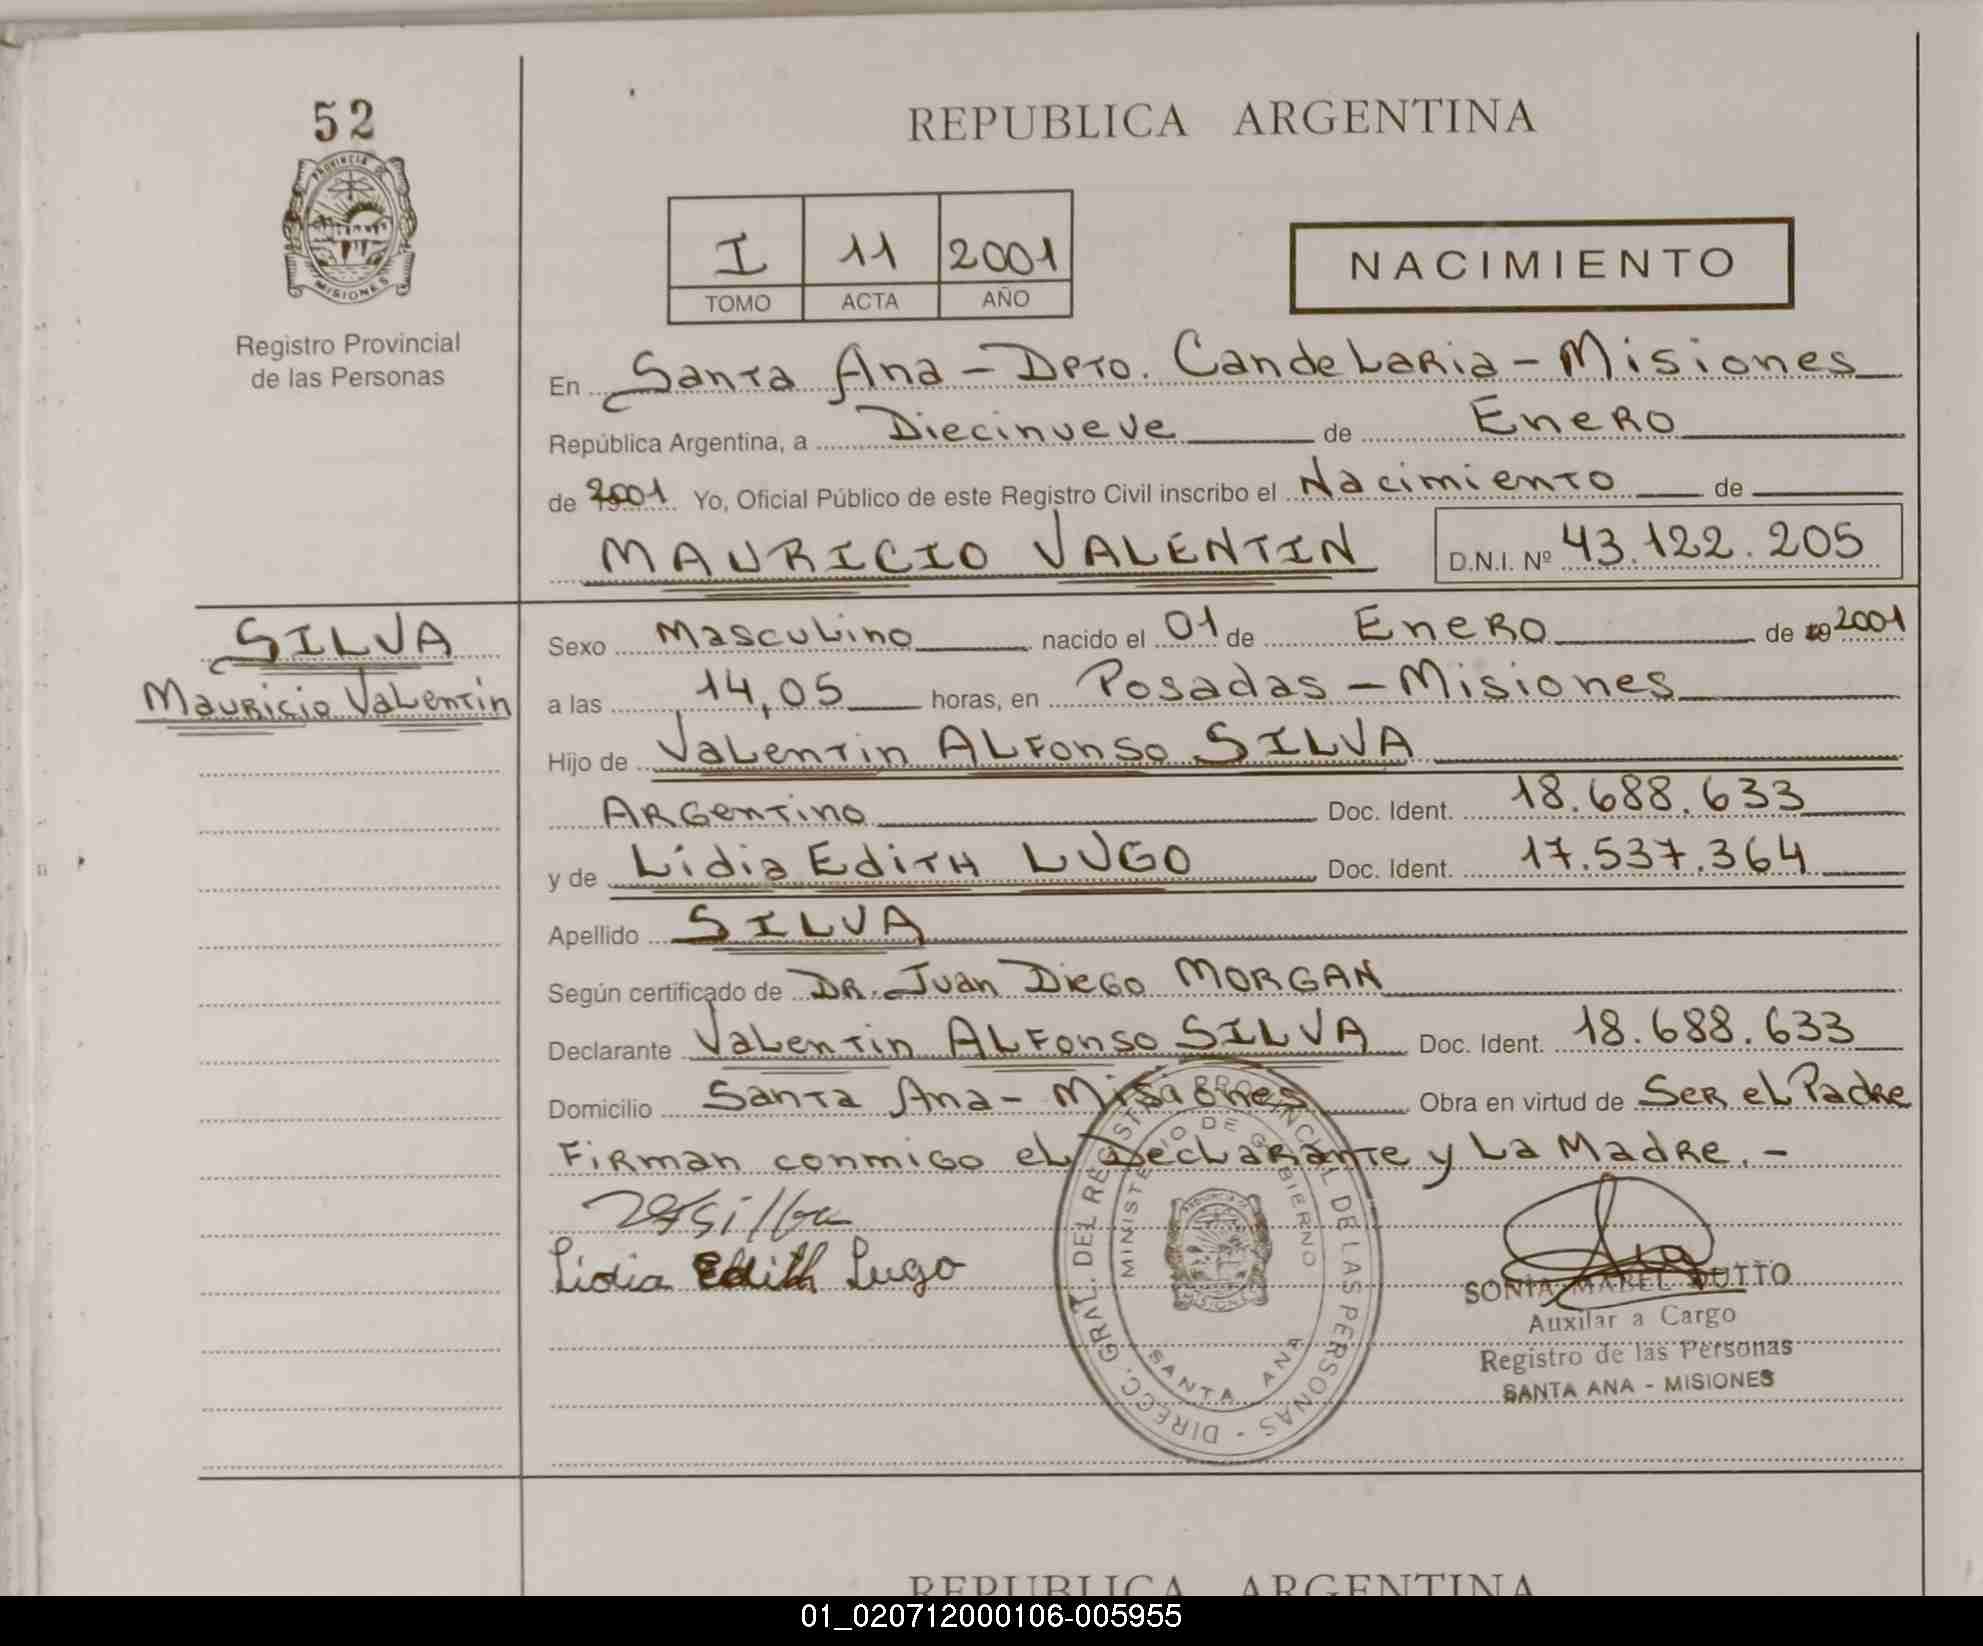 52
PROVINCIA DE
MISIONES
Registro Provincial
de las Personas
REPUBLICA ARGENTINA
I 11 2001
TOMO ACTA AÑO
NACIMIENTO
En Santa Ana - Dpto. Candelaria - Misiones
República Argentina, a Diecinueve de Enero
de 2001 Yo, Oficial Público de este Registro Civil inscribo el Nacimiento de
MAURICIO VALENTIN D.N.I. Nº 43.122.205
SILVA
Mauricio Valentin
Sexo Masculino nacido el 01 de Enero de 2001
a las 14,05 horas, en Posadas - Misiones
Hijo de Valentin Alfonso SILVA
Argentino Doc. Ident. 18.688.633
y de Lidia Edith LUGO Doc. Ident. 17.537.364
Apellido SILVA
Según certificado de DR. Juan Diego MORGAN
Declarante Valentin Alfonso SILVA Doc. Ident. 18.688.633
Domicilio Santa Ana - Misiones Obra en virtud de Ser el Padre
Firman conmigo el Declarante y La Madre. -
Lidia Edith Lugo
DIRECC. GRAL. DEL REGISTRO PROVINCIAL DE LAS PERSONAS -
MINISTERIO DE GOBIERNO
SANTA ANA
SONIA MABEL DUTTO
Auxilar a Cargo
Registro de las Personas
SANTA ANA - MISIONES
REPUBLICA ARGENTINA
01_020712000106-005955